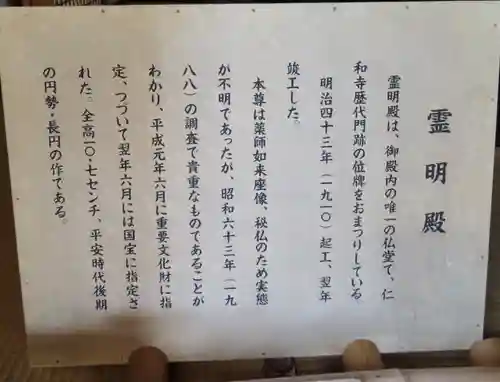 霊明殿
霊明殿は、御殿内の唯一の仏堂で、仁
和寺歴代門跡の位牌をおまつりしている
明治四十三年（一九一〇）起工、翌年
竣工した。
本尊は薬師如来座像、秘仏のため実態
が不明であったが、昭和六十三年（一九
八八）の調査で貴重なものであることが
わかり、平成元年六月に重要文化財に指
定、つづいて翌年六月には国宝に指定さ
れた。全高一〇・七センチ、平安時代後期
の円勢・長円の作である。